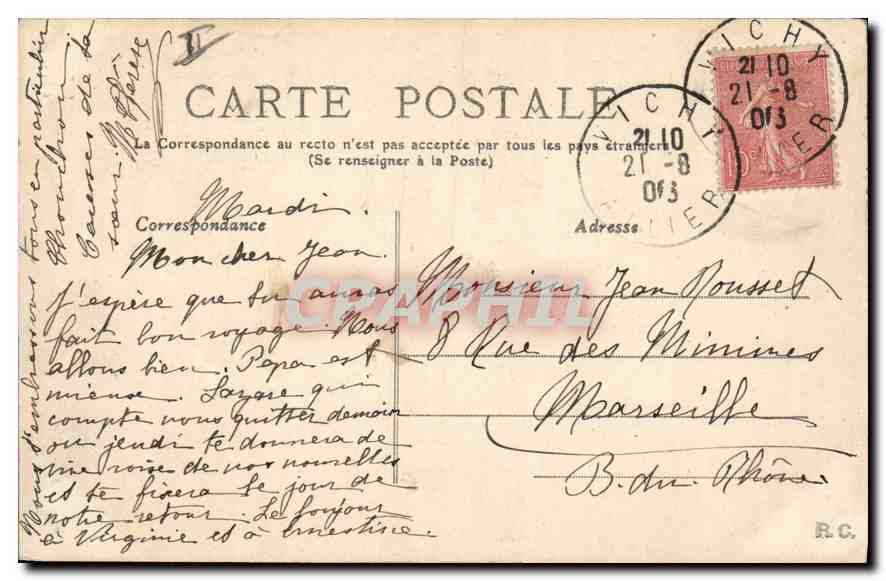 II
CARTE POSTALE
La Correspondance au recto n'est pas acceptée par tous les pays étrangers
(Se renseigner à la Poste)
Correspondance
Adresse
VICHY
21 10
21 -8
ALLIER
VICHY
21 10
21 -8
ALLIER
10c
Mardi.
Mon cher Jean.
J'espère que tu auras
fait bon voyage. Nous
allons bien. Papa est
mieux. Lazare qui
compte nous quitter demain
ou jeudi te donnera de
vive voix de nos nouvelles
et te fixera le jour de
notre retour. Le bonjour
à Virginie et à Ernestine.
Nous t'embrassons tous en particulier
Caresses de ta
sœur
Monsieur Jean Rousset
8 Rue des Minimes
Marseille
B. du Rhône
GRAPHIL
R.C.